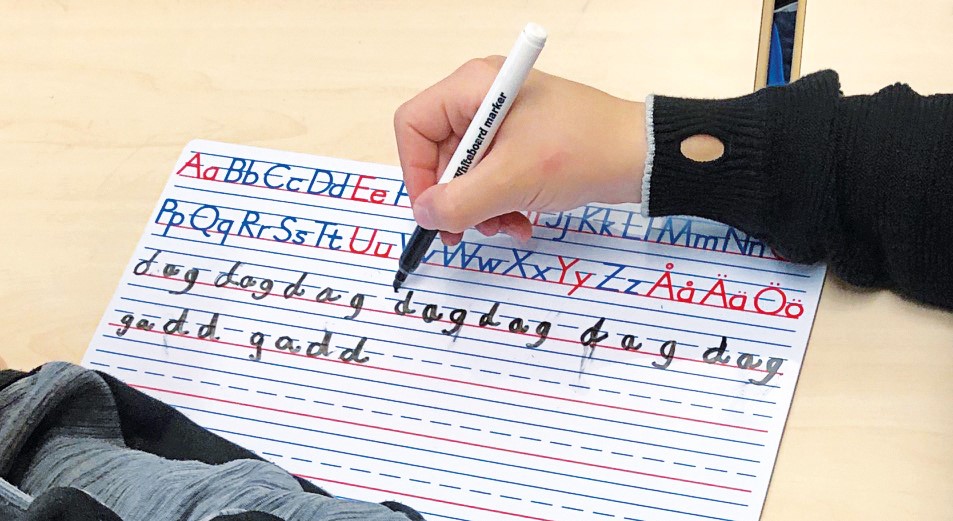 Whiteboard marker
Aa Bb Cc Dd Ee F Jj Kk Ll Mm Nn
Pp Qq Rr Ss Tt Uu Vv Ww Xx Yy Zz Åå Ää Öö
dag dag dag dag dag dag dag
gadd gadd